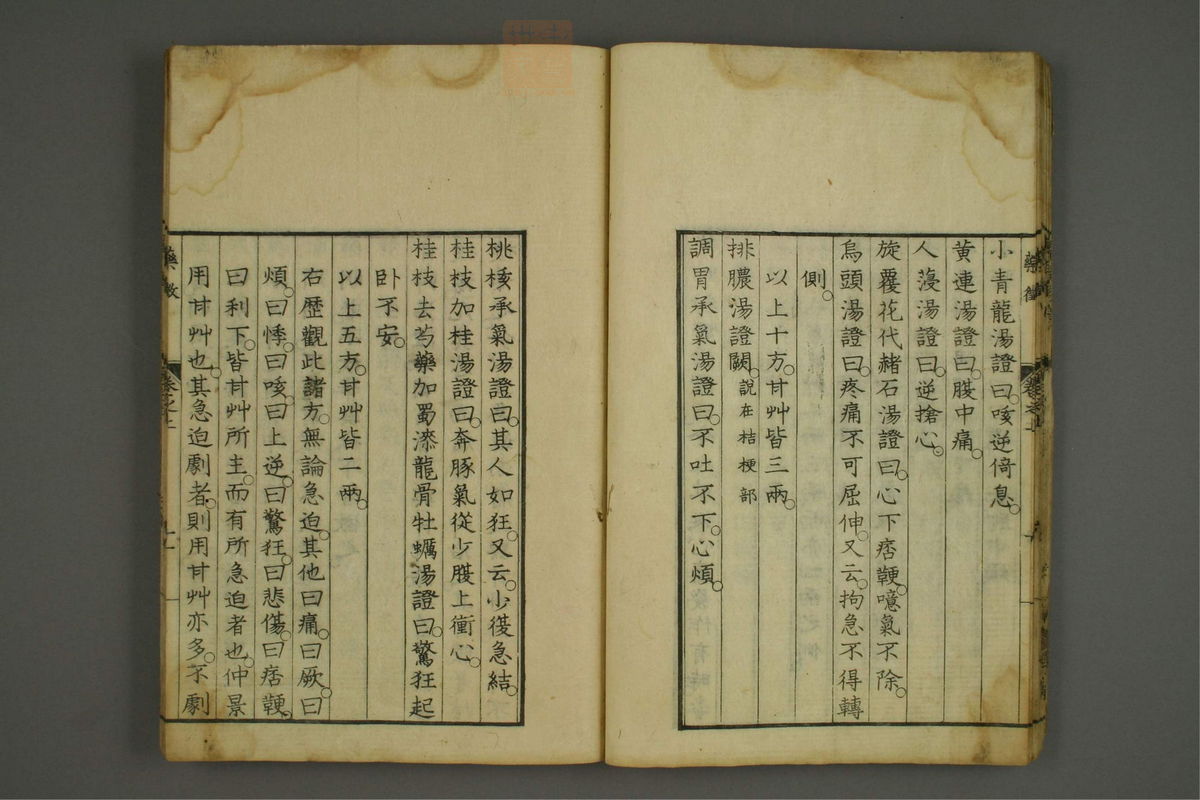 小青龍湯證曰。咳逆倚息。
黃連湯證曰。腹中痛。
人蓡湯證曰。逆搶心。
旋覆花代赭石湯證曰。心下痞鞕。噫氣不除。
烏頭湯證曰。疼痛不可屈伸。又云。拘急不得轉
側。
以上十方。甘艸皆三兩。
排膿湯證闕。說在桔梗部
調胃承氣湯證曰。不吐不下。心煩。
桃核承氣湯證曰。其人如狂。又云。少腹急結。
桂枝加桂湯證曰。奔豚氣從少腹上衝心。
桂枝去芍藥加蜀漆龍骨牡蠣湯證曰。驚狂起
卧不安。
以上五方。甘艸皆二兩。
右歷觀此諸方。無論急迫。其他曰痛。曰厥。曰
煩。曰悸。曰咳。曰上逆。曰驚狂。曰悲傷。曰痞鞕。
曰利下。皆甘艸所主。而有所急迫者也。仲景
用甘艸也。其急迫劇者。則用甘艸亦多。不劇
藥徵
卷之上